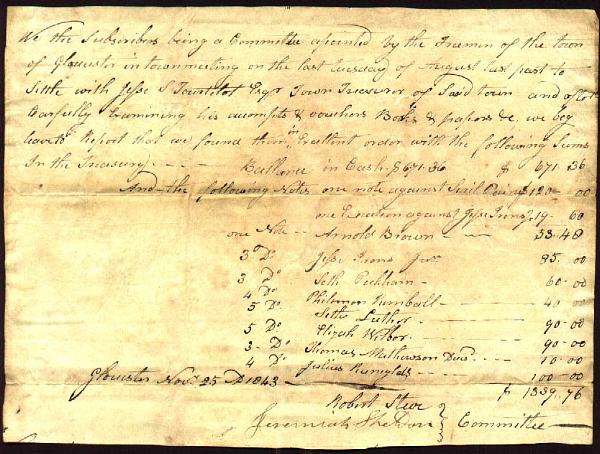 We the Subscribers being a Committee apointed by the Freemen of the town
of Glocester in townmeeting on the last tuesday of August last past to
Settle with Jesse S Tourtelot Esqr Town Treasurer of Said town and after
Carfully Examining his accompts & vouchers Books & papers &c. we beg
leave to Report that we found them in Excellent order with the following Sums
In the Treasury. - - - - Ballance in Cash $671-36 $ 671-36
And the following Notes one note against $120-00
one Execution against Jesse 19-60
one Note - - Arnold Brown - - - 53-48
3 Do Jesse Junr 85-00
3 Do Seth Peckham - 60-00
4 Do Philemon - 40-00
5 Do Luther - 90-00
5 Do Elijah Wilbor - 90-00
3 - Do Thomas Mathewson 10-00
4 Do Julius 100-00
Glocester Novr 25 AD 1843 - $ 1339.76
Robert Steere
Jeremiah Sheldon } Committee